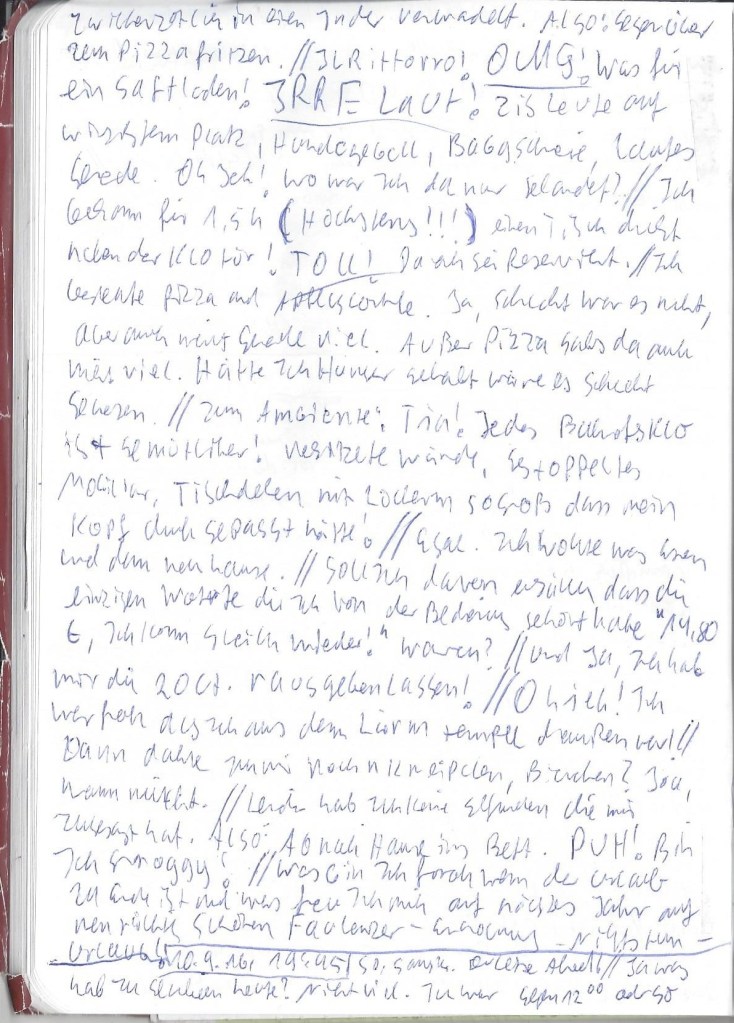 zwischenzeitlich in einen Inder verwandelt. Also: Gegenüber
zum Pizzafritzen. // IL Rittorro! OMG! Was für
ein Saftladen! IRRE Laut! Leute auf
winzigstem Platz, Hundegebell, Babygeschrei, lautes
Gerede. Oh Jeh! Wo war ich da nur gelandet? // Ich
bekam für 1,5h (Höchstens!!!) einen Tisch dicht
neben der Klotür! TOLL! Danach sei Reserviert. // Ich
bestellte Pizza und Apfelschorle. Ja, schlecht war es nicht,
aber auch nicht gerade viel. Außer Pizza gabs da auch
nicht viel. Hätte ich Hunger gehabt wäre es schlecht
gewesen. // Zum Ambiente: Tja! Jedes Bahnhofsklo
ist gemütlicher! Verspritzte Wände, gestoppeltes
Mobiliar, Tischdecken mit Löchern so groß dass mein
Kopf durch gepasst hätte! // Egal. Ich wollte was essen
und dann nach hause. // Soll ich davon erzählen dass die
einzigen Worte die ich von der Bedienung gehört habe "14,80
€, Ich komm gleich wieder!" waren? // Und Ja, ich hab
mir die 20Ct. rausgeben lassen! // Oh jeh! Ich
war froh als ich aus dem Lärm tempel draußen war! //
Dann dachte ich mir noch n Kneipchen, Bierchen? Joa,
warum nicht. // Leider hab ich keine gefunden die mir
zugesagt hat. Also: Ab nach Hause ins Bett. PUH! Bin
Ich groggy! // Was bin ich froh wenn der Urlaub
zu ende ist und was freu ich mich auf nächstes Jahr auf
nen richtig schönen Faulenzer - Erholung - nichtstun -
Urlaub! 10.9.16, 19:45 / So, Der letzte Abend! // Ja was
hab ich gemacht heute? Nicht viel. Ich war gegen 12⁰⁰ oder so